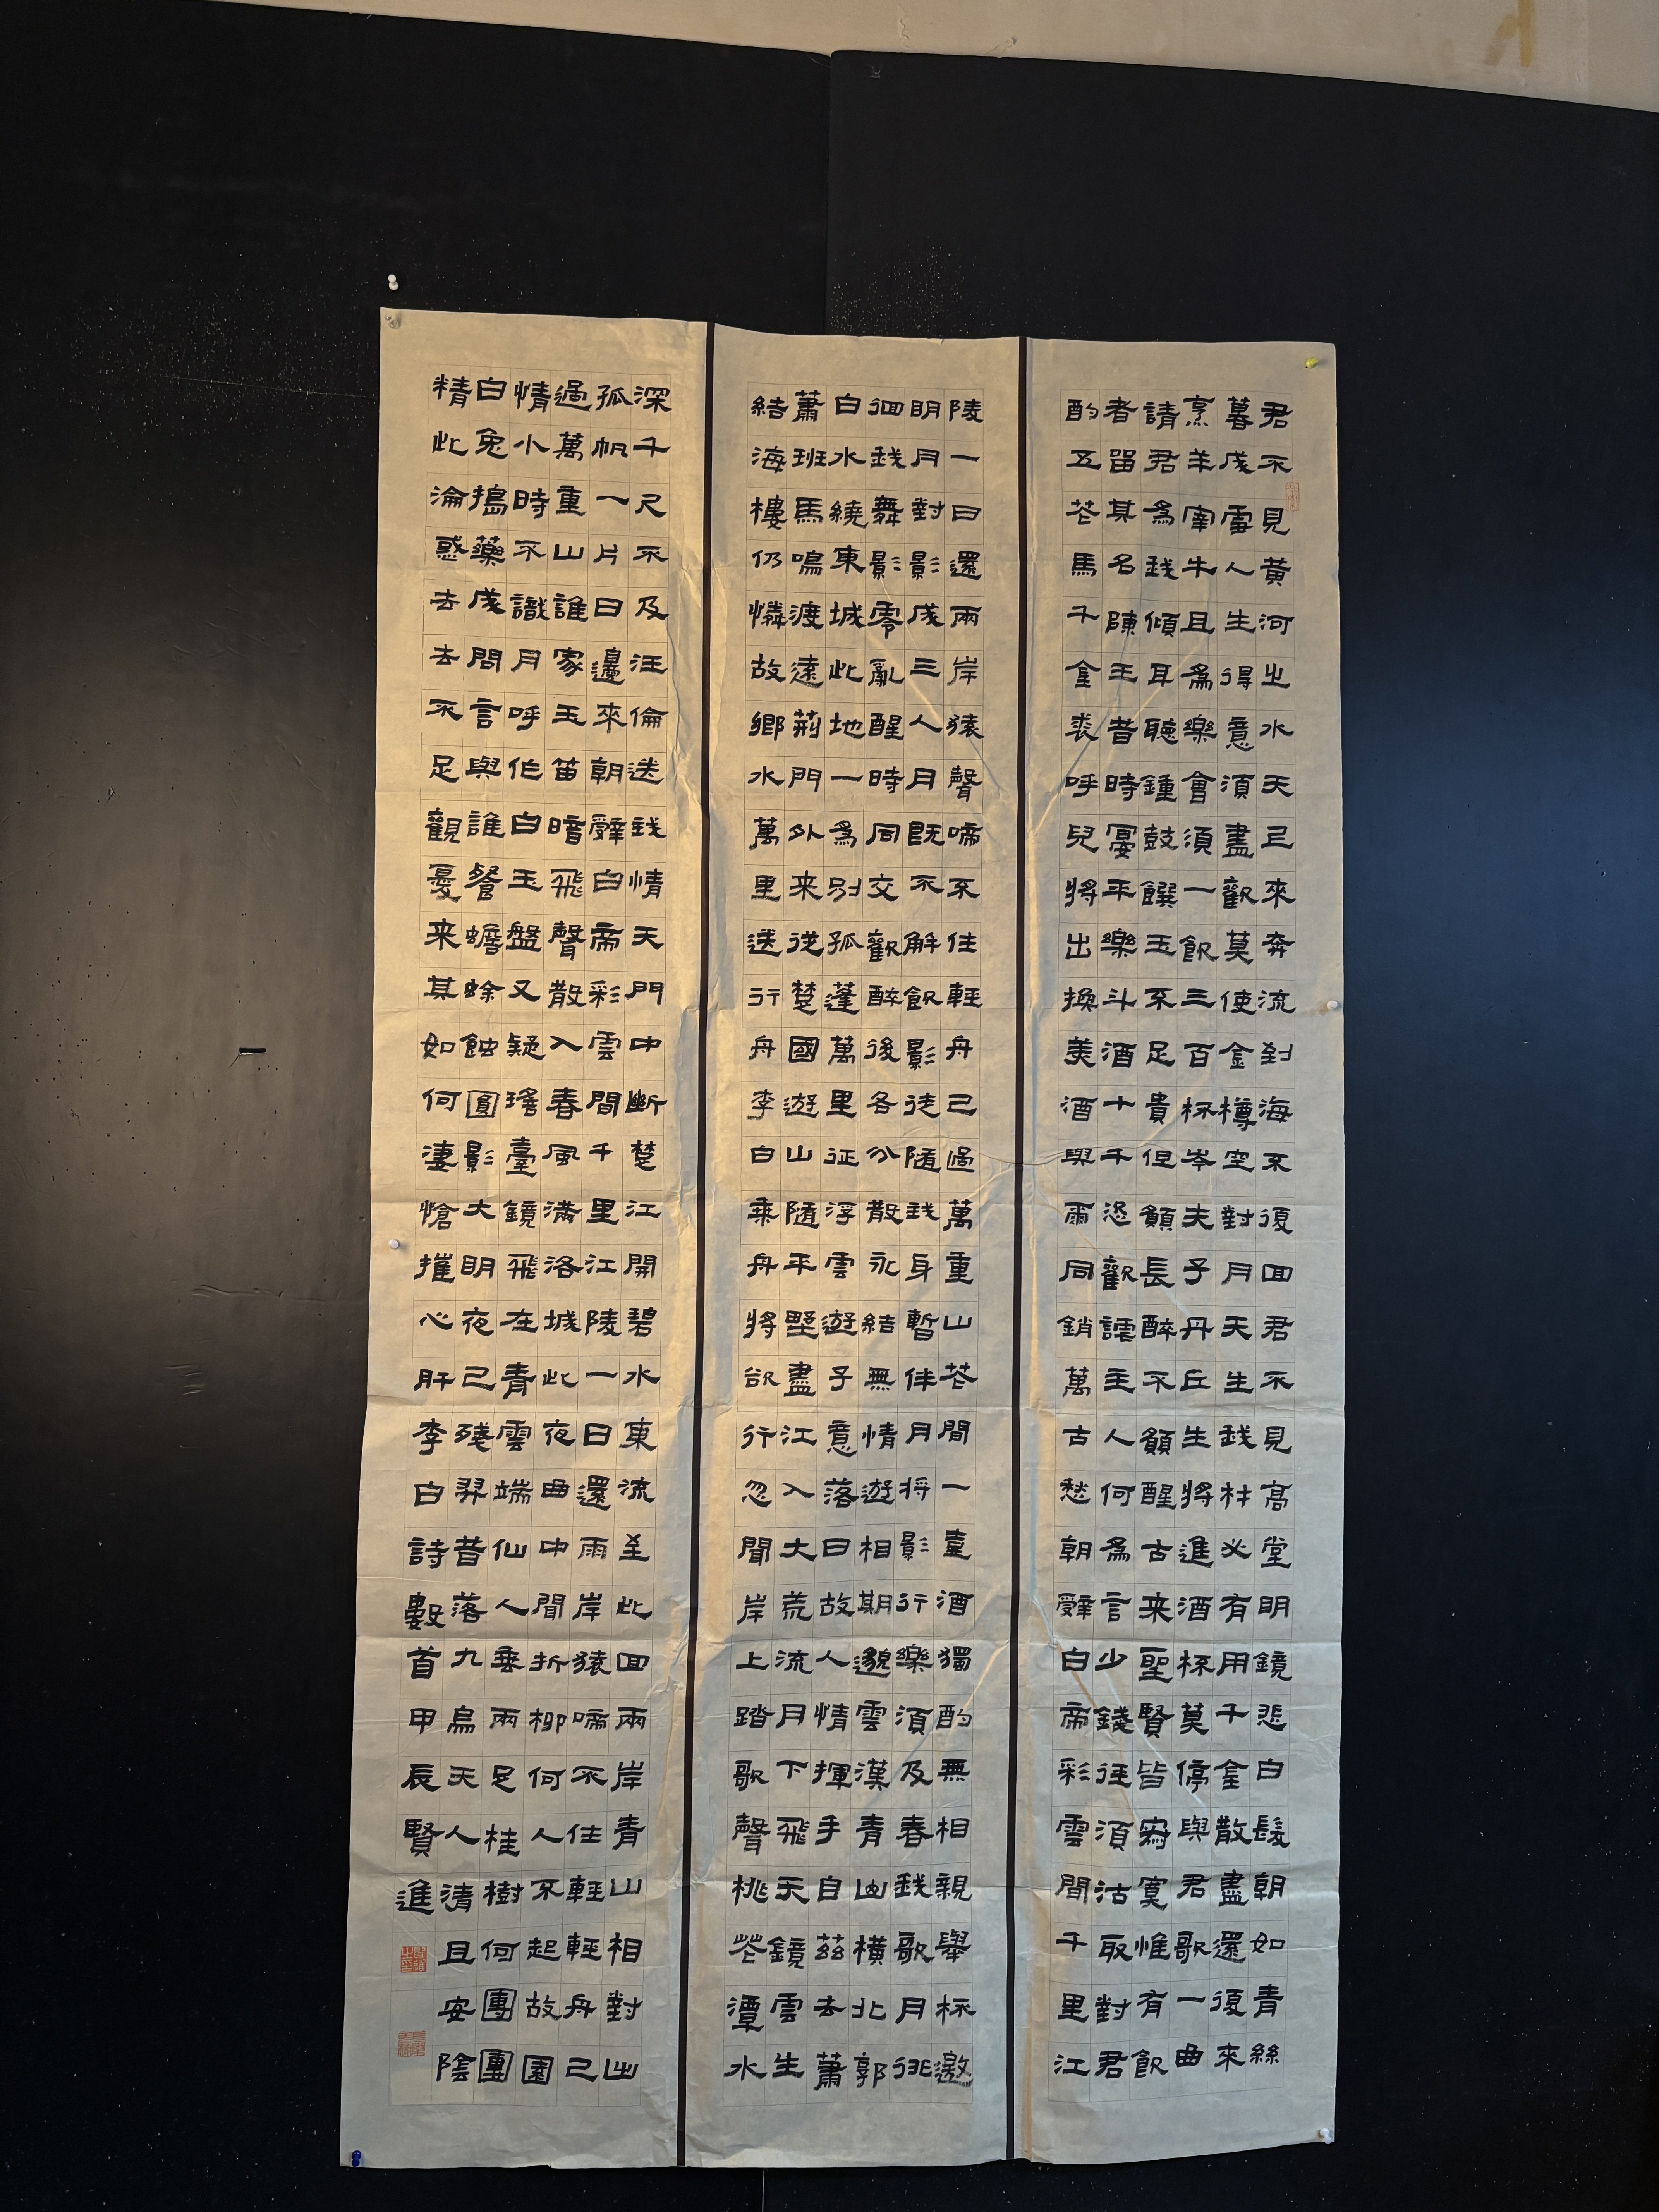 君不見黃河之水天上來奔流到海不復回君不見高堂明鏡悲白髮朝如青絲
暮成雪人生得意須盡歡莫使金樽空對月天生我材必有用千金散盡還復來
烹羊宰牛且為樂會須一飲三百杯岑夫子丹丘生將進酒杯莫停與君歌一曲
請君為我傾耳聽鍾鼓饌玉不足貴但願長醉不願醒古来聖賢皆寂寞惟有飲
者留其名陳王昔時宴平樂斗酒十千恣歡謔主人何為言少錢徑須沽取對君
酌五花馬千金裘呼兒將出換美酒與爾同銷萬古愁朝辭白帝彩雲間千里江
陵一日還兩岸猿聲啼不住輕舟已過萬重山花間一壺酒獨酌無相親舉杯邀
明月對影成三人月既不解飲影徒隨我身暫伴月将影行樂須及春我歌月徘
徊我舞影零亂醒時同交歡醉後各分散永結無情遊相期邈雲漢青山橫北郭
白水繞東城此地一為別孤蓬萬里征浮雲遊子意落日故人情揮手自茲去蕭
蕭班馬鳴渡遠荆門外来從楚國遊山隨平野盡江入大荒流月下飛天鏡雲生
結海樓仍憐故鄉水萬里送行舟李白乘舟將欲行忽聞岸上踏歌聲桃花潭水
深千尺不及汪倫送我情天門中斷楚江開碧水東流至此回兩岸青山相對出
孤帆一片日邊來朝辭白帝彩雲間千里江陵一日還兩岸猿啼不住輕輕舟已
過萬重山誰家玉笛暗飛聲散入春風滿洛城此夜曲中聞折柳何人不起故園
情小時不識月呼作白玉盤又疑瑤臺鏡飛在青雲端仙人垂兩足桂樹何團團
白兔搗藥成問言與誰餐蟾蜍蝕圓影大明夜已殘羿昔落九烏天人清且安陰
精此淪惑去去不足觀憂来其如何凄愴摧心肝李白詩數首甲辰賢進